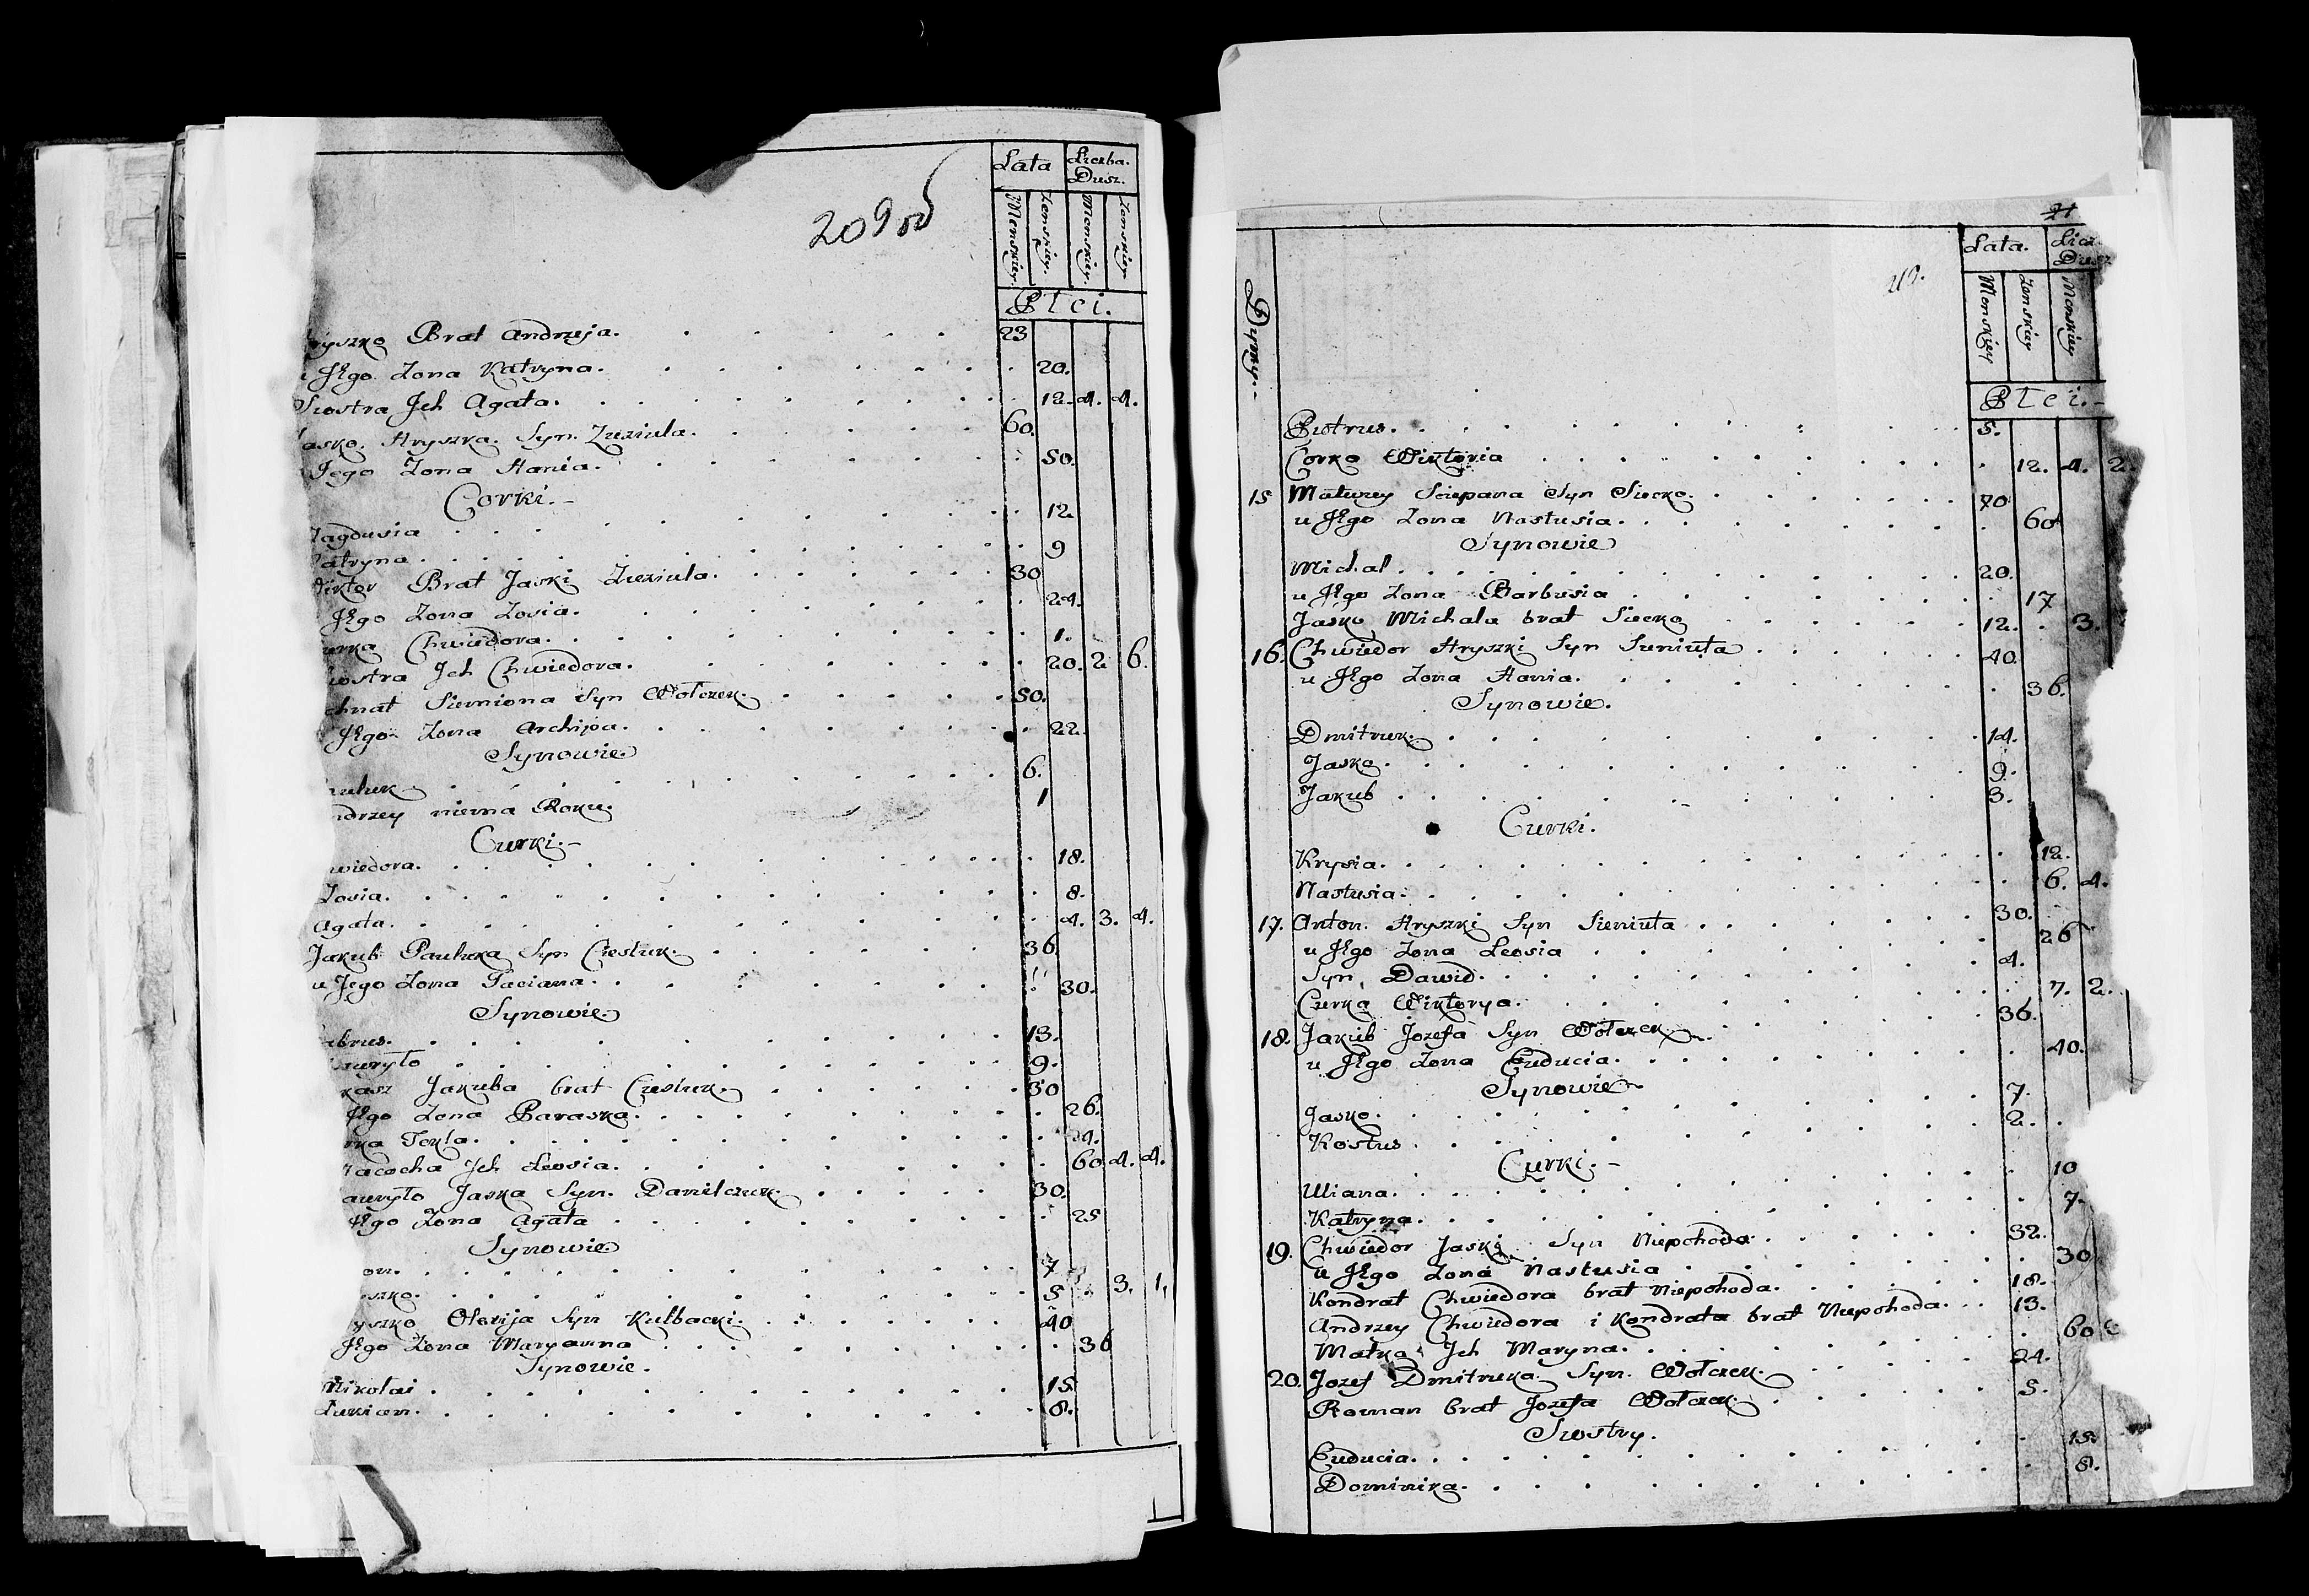 209 об
Lata Liczba Dusz.
Menskiey. Zenskiey. Menskiey. Zenskiey.
Płci.
ryszko Brat Andrzeja. 23
u Jego Zona Katryna. 20.
Siostra Jch Agata. 12. 4. 4.
Jasko Hryszka Syn Zuziula. 60.
Jego Zona Hania. 50.
Corki.
Magdusia 12.
Katryna 9
Wiktor Brat Jaski Zuziula. 30
Jego Zona Zosia. 24.
Curka Chwiedora. 1.
Siostra Jch Chwiedora. 20. 2 6.
chnat Siemiona Syn Wołczek. 50.
Jego Zona Archipa. 22.
Synowie
auluk 6.
ndrzey niema Roku. 1
Curki.
wiedora. 18.
Zosia. 8.
Agata. 4. 3. 4.
Jakub Pauluka Syn Cieśluk. 36.
u Jego Zona Taciana. 30.
Synowie
abrus. 13.
auryło 9.
kasz Jakuba brat Cieśluk. 30
Jego Zona Paraska. 26.
rka Tekla. 4.
Macocha Jch Leosia. 60. 4. 4.
auryło Jaska Syn. Danilczuk. 30.
Jego Zona Agata 25
Synowie
on. 7
szko. 5 3. 1.
yszko Olexija Syn Kulbacki. 40
Jego Zona Maryanna 36
Synowie.
Mikołai 15
Łukian. 8.
21
Dymy.
Lata. Licz. Dusz
Menskiey Zenskiey Menskiey
Płci.
Piotrus. 5.
Corka Wiktoria 12. 4. 2.
15 Matwey Sciepana Syn Siecko. 70
u Jego Zona Nastusia. 60
Synowie
Michal 20.
u Jego Zona Barbusia 17
Jasko Michala brat Siecko 12. 3.
16. Chwiedor Hryszki Syn Sieniuta 40.
u Jego Zona Hania. 36.
Synowie.
Dmitruk. 14.
Jasko. 9.
Jakub 3.
Curki.
Krysia. 12.
Nastusia. 6. 4.
17. Anton. Hryszki Syn Sieniuta 30.
u Jego Zona Leosia 26
Syn Dawid. 4.
Curka Wiktorya. 7. 2.
18. Jakub Jozefa Syn Wołczek 36.
u Jego Zona Euducia. 40.
Synowie
Jasko. 7.
Kostus 2.
Curki.
Uliana. 10
Katryna. 7.
19. Chwiedor Jaski Syn Niepohoda. 32.
u Jego Zona Nastusia 30
Kondrat Chwiedora brat Niepohoda. 18.
Andrzey Chwiedora i Kondrata brat Niepohoda. 13.
Matka Jch Maryna. 60
20. Jozef Dmitruka Syn. Wołczek. 24.
Roman brat Jozefa Wołczek. 5.
Siostry.
Euducia. 15.
Dominika. 8.